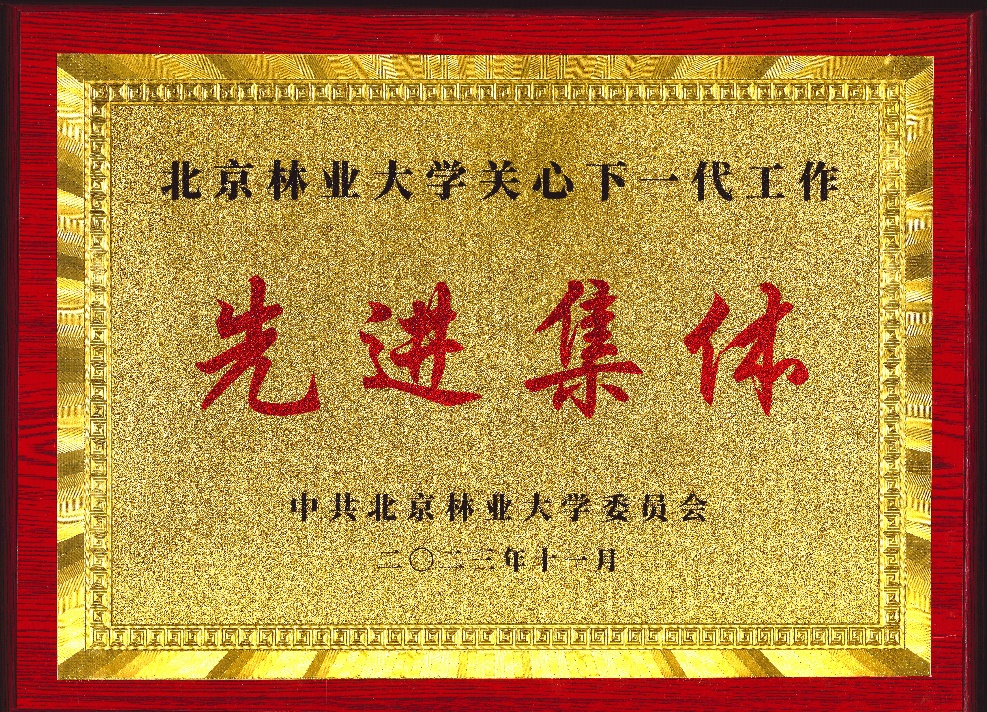 北京林业大学关心下一代工作
先进集体
中共北京林业大学委员会
二〇二三年十一月